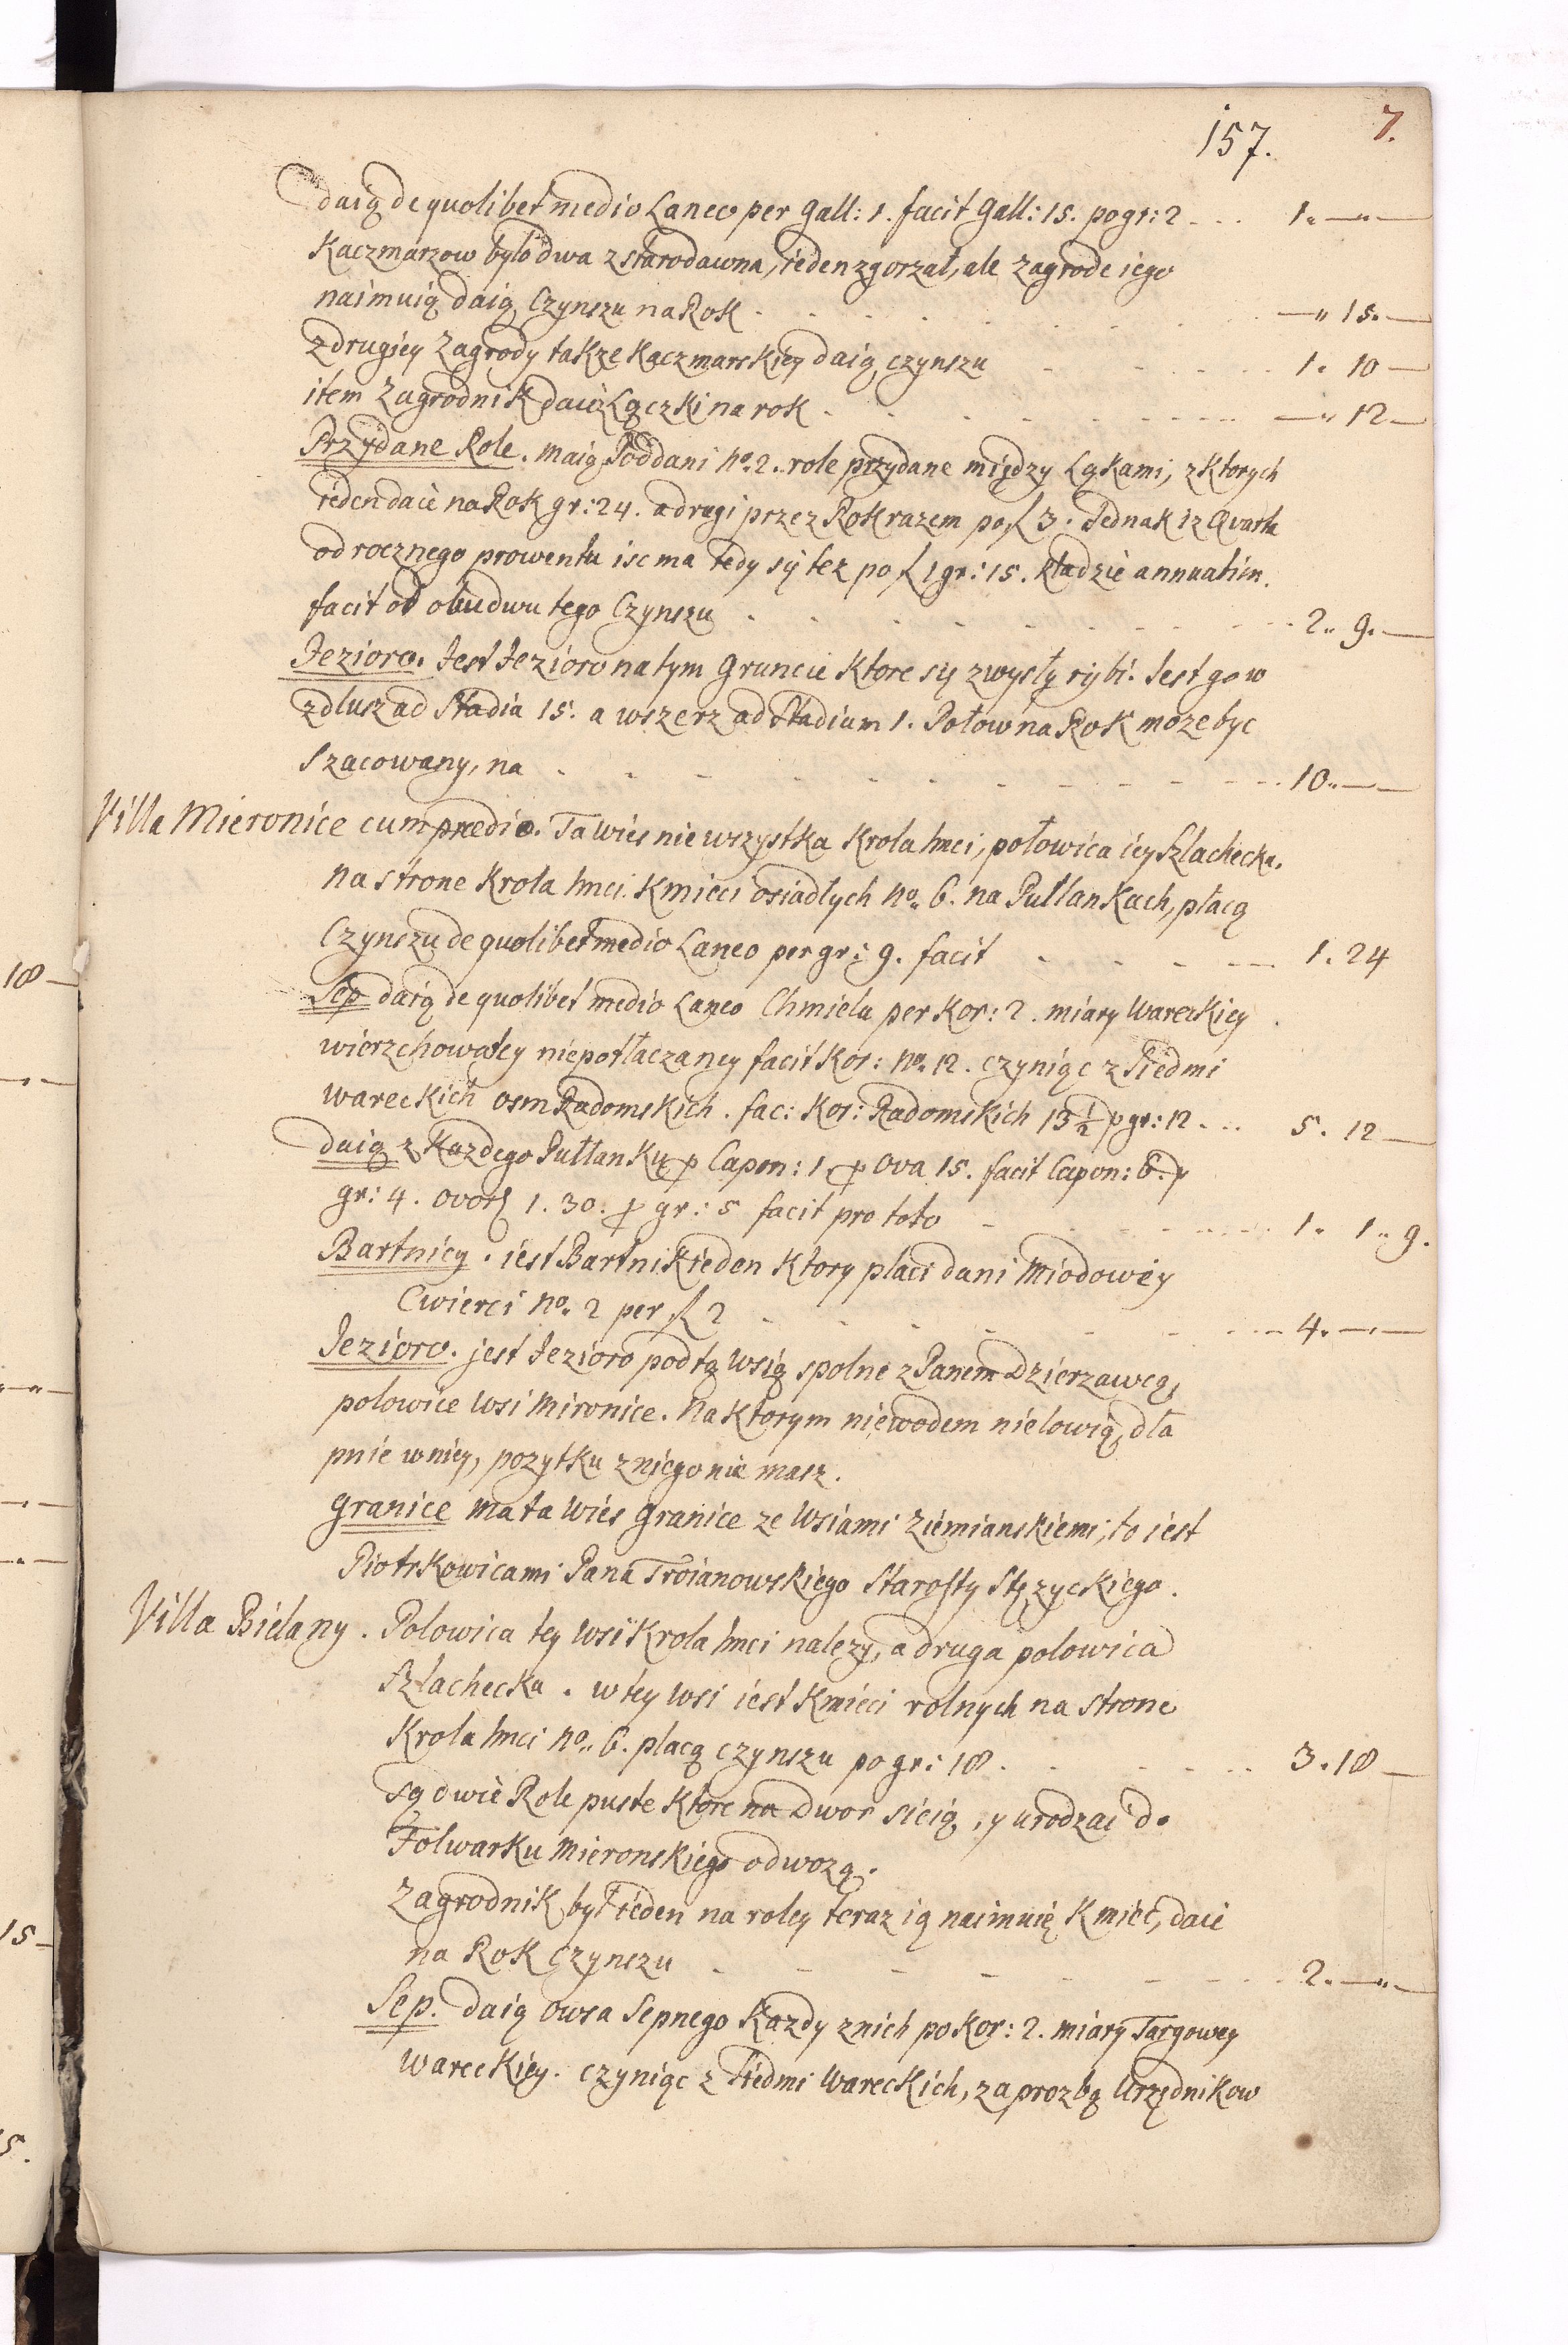 157. 7.
daią de quolibet medio Laneo per Gall: 1. facit Gall: 15. po gr: 2 - - - 1. —„—
Kaczmarzow było dwa z starodawna, ieden zgorzał, ale Zagrode iego
naimuią daią Czynszu na Rok - - - —„ 15. —
z drugiey Zagrody takze Kaczmarskiey daią czynszu - - - 1. 10 —
item Zagrodnik daie z Łączki na rok - - - —„ 12 —
Przydane Role. maią Poddani No. 2. role przydane między Łąkami, z ktorych
ieden daie na Rok gr: 24. a drugi przez Rok razem po f 3. Jednak iz Qvarta
od rocznego prowentu isc ma tedy się tez po f 1 gr: 15. kładzie annuatim.
facit od obudwu tego Czynszu - - - 2„ 9. —
Jezioro. Jest Jezioro na tym Gruncie ktore się zwysły rybi. Jest go w
zdłusz ad Stadia 15. a wszerz ad Stadium 1. Połow na Rok moze byc
Szacowany, na - - - 10„ — —
Villa Mieronice cum prædio. Ta wies nie wszystka Krola Jmci, połowica iey Szlachecka.
na strone Krola Jmci. Kmieci osiadłych No. 6. na Pułłankach, płacą
Czynszu de quolibet medio Laneo per gr: 9. facit - - - 1. 24
Sep daią de quolibet medio Laneo Chmielu per Kor: 2. miary Wareckiey
wierzchowatey niepotłaczaney facit Kor: No. 12. czyniąc z Siedmi
wareckich osm Radomskich. fac: Kor: Radomskich 13 1/2 p gr: 12 - - - 5. 12 —
daią z Kazdego Pułłanku p Capon: 1 p Ova 15. facit Capon: 6. p
gr: 4. ovor 1. 30. p gr: 5 facit pro toto - - - 1. 1„ 9.
Bartnicy. iest Bartnik ieden ktory płaci dani Miodowey
Cwierci No. 2 per f 2 - - - 4. —„—
Jezioro. jest Jezioro pod tą Wsią spolne z Panem Dzierzawcą,
polowice Wsi Mironice. Na ktorym niewodem nie lowią, dla
pnie w niey, pozytku z niego nie masz.
Granice ma ta Wies Granice ze Wsiami Ziemianskiemi, to iest
Piotrkowicami Pana Troianowskiego Starosty Stęzyckiego.
Villa Bielany. Polowica tey Wsi Krola Jmci nalezy, a druga polowica
Szlachecka. w tey Wsi iest Kmieci rolnych na strone
Krola Jmci No. 6. płacą czynszu po gr: 18 - - - 3. 18 —
są dwie Role puste ktore na Dwor sieią, y urodzai do
Folwarku Mieronskiego odwozą.
Zagrodnik był ieden na roley teraz ią naimuię Kmieć, daie
na Rok Czynszu - - - 2. —„—
Sep. daią Owsa Sepnego Kazdy z nich po Kor: 2. miary Targowey
Wareckiey. czyniąc z Siedmi Wareckich, za prozbą Urzędnikow
18 —
15 —
5.